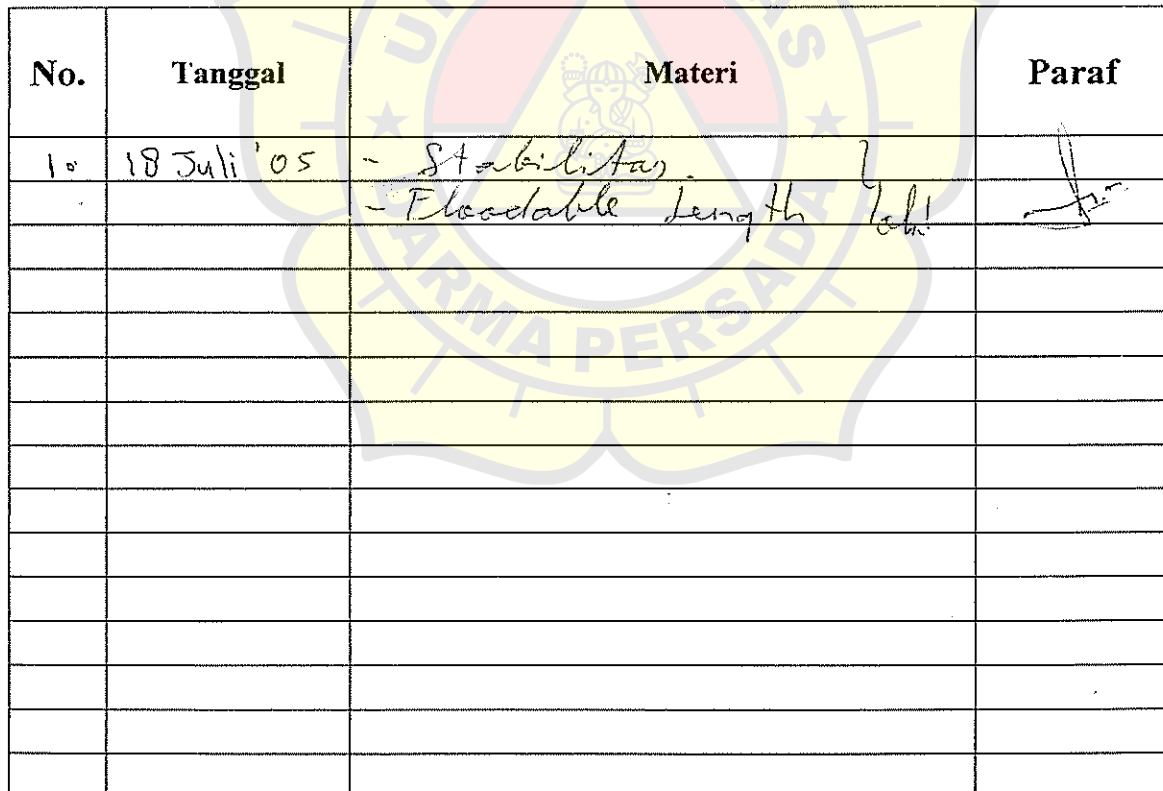 No. Tanggal Materi Paraf
10 18 Juli '05 - Stabilitas.
- Floodable Length
UN AS
DARMA PERSADA